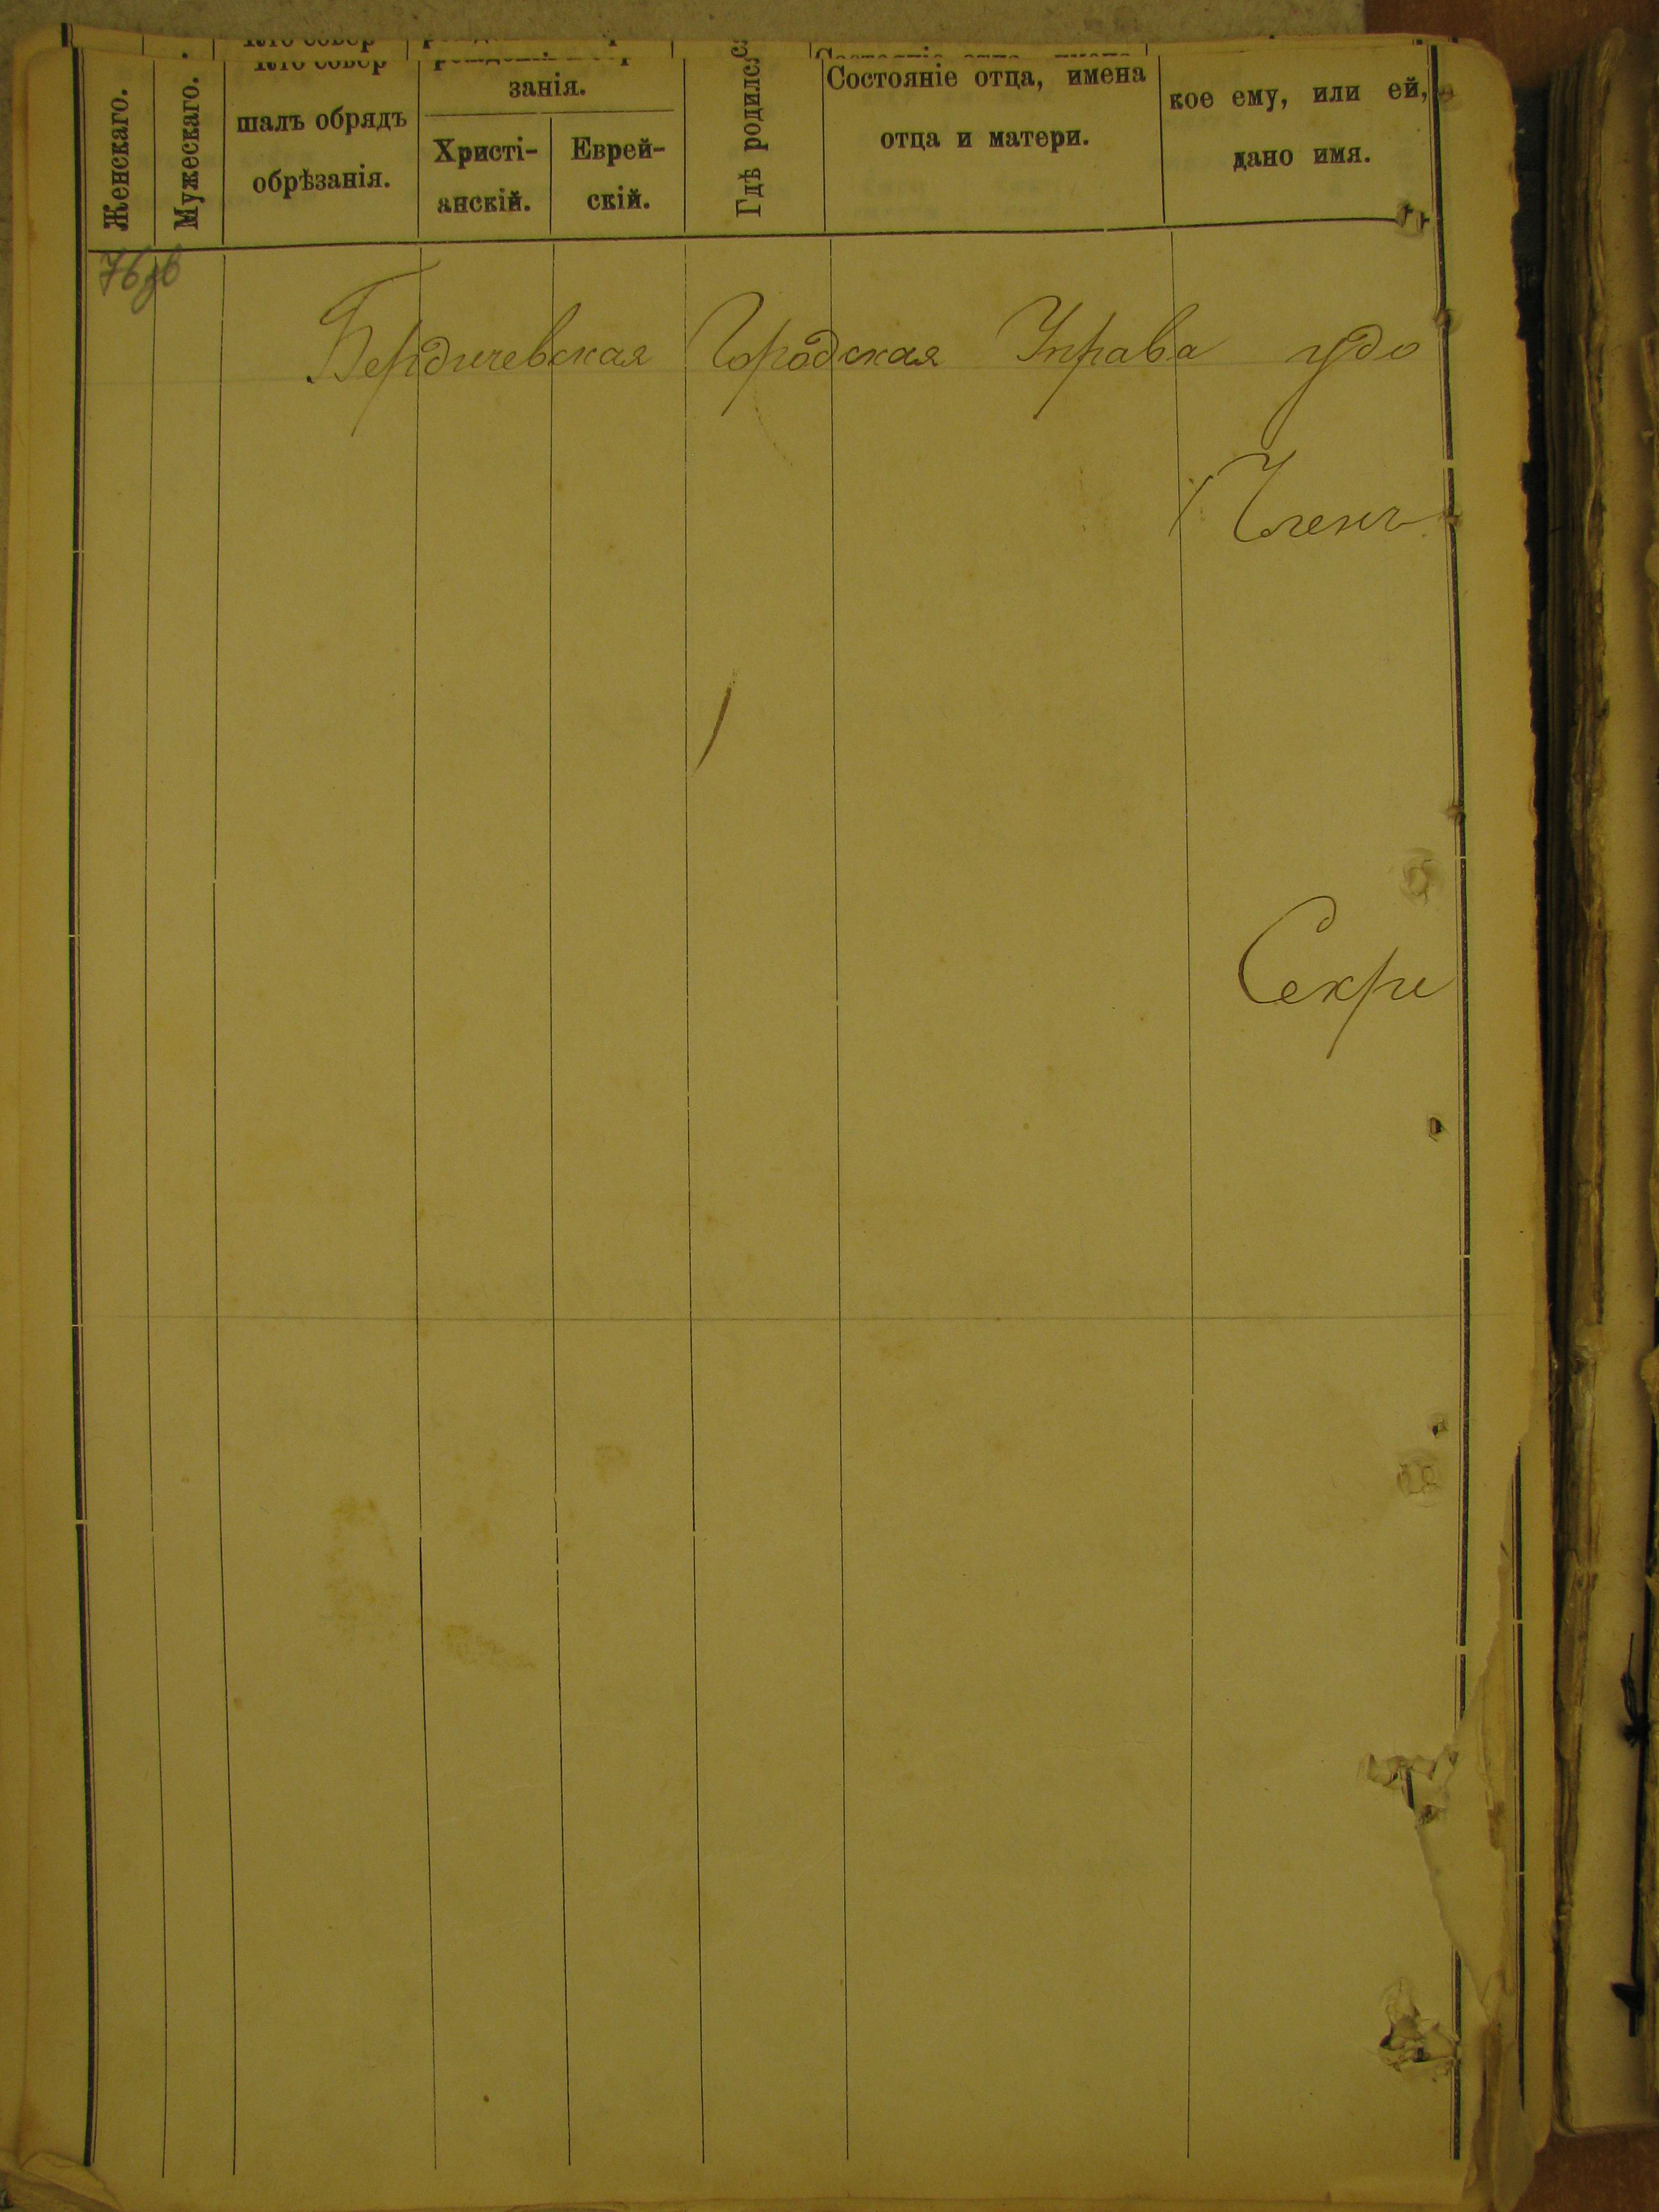 Женскаго.
Мужескаго.
Кто совер
шалъ обрядъ
обрѣзанія.
занія.
Христі-
анскій.
Еврей-
скій.
Гдѣ родился
Состояніе отца, имена
отца и матери.
кое ему, или ей,
дано имя.
Бердичевская Городская Управа удо
Членъ
Секре